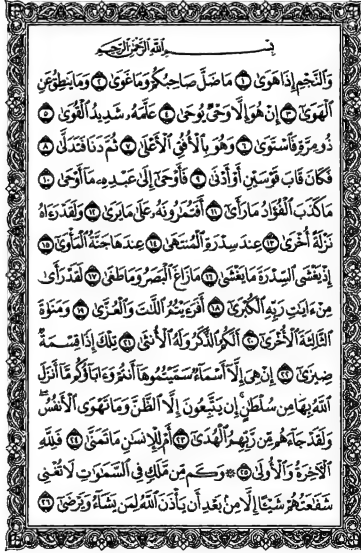 بِسْمِ ٱللَّهِ ٱلرَّحْمَٰنِ ٱلرَّحِيمِ
وَٱلنَّجْمِ إِذَا هَوَىٰ ١ مَا ضَلَّ صَاحِبُكُمْ وَمَا غَوَىٰ ٢ وَمَا يَنطِقُ عَنِ
ٱلْهَوَىٰٓ ٣ إِنْ هُوَ إِلَّا وَحْىٌ يُوحَىٰ ٤ عَلَّمَهُۥ شَدِيدُ ٱلْقُوَىٰ ٥
ذُو مِرَّةٍ فَٱسْتَوَىٰ ٦ وَهُوَ بِٱلْأُفُقِ ٱلْأَعْلَىٰ ٧ ثُمَّ دَنَا فَتَدَلَّىٰ ٨
فَكَانَ قَابَ قَوْسَيْنِ أَوْ أَدْنَىٰ ٩ فَأَوْحَىٰٓ إِلَىٰ عَبْدِهِۦ مَآ أَوْحَىٰ ١٠
مَا كَذَبَ ٱلْفُؤَادُ مَا رَأَىٰٓ ١١ أَفَتُمَٰرُونَهُۥ عَلَىٰ مَا يَرَىٰ ١٢ وَلَقَدْ رَءَاهُ
نَزْلَةً أُخْرَىٰ ١٣ عِندَ سِدْرَةِ ٱلْمُنتَهَىٰ ١٤ عِندَهَا جَنَّةُ ٱلْمَأْوَىٰٓ ١٥
إِذْ يَغْشَى ٱلسِّدْرَةَ مَا يَغْشَىٰ ١٦ مَا زَاغَ ٱلْبَصَرُ وَمَا طَغَىٰ ١٧ لَقَدْ رَأَىٰ
مِنْ ءَايَٰتِ رَبِّهِ ٱلْكُبْرَىٰٓ ١٨ أَفَرَءَيْتُمُ ٱللَّٰتَ وَٱلْعُزَّىٰ ١٩ وَمَنَوٰةَ
ٱلثَّالِثَةَ ٱلْأُخْرَىٰٓ ٢٠ أَلَكُمُ ٱلذَّكَرُ وَلَهُ ٱلْأُنثَىٰ ٢١ تِلْكَ إِذًا قِسْمَةٌ
ضِيزَىٰٓ ٢٢ إِنْ هِىَ إِلَّآ أَسْمَآءٌ سَمَّيْتُمُوهَآ أَنتُمْ وَءَابَآؤُكُم مَّآ أَنزَلَ
ٱللَّهُ بِهَا مِن سُلْطَٰنٍ إِن يَتَّبِعُونَ إِلَّا ٱلظَّنَّ وَمَا تَهْوَى ٱلْأَنفُسُ
وَلَقَدْ جَآءَهُم مِّن رَّبِّهِمُ ٱلْهُدَىٰٓ ٢٣ أَمْ لِلْإِنسَٰنِ مَا تَمَنَّىٰ ٢٤ فَلِلَّهِ
ٱلْءَاخِرَةُ وَٱلْأُولَىٰ ٢٥ ۞ وَكَم مِّن مَّلَكٍ فِى ٱلسَّمَٰوَٰتِ لَا تُغْنِى
شَفَٰعَتُهُمْ شَيْـًٔا إِلَّا مِنۢ بَعْدِ أَن يَأْذَنَ ٱللَّهُ لِمَن يَشَآءُ وَيَرْضَىٰٓ ٢٦